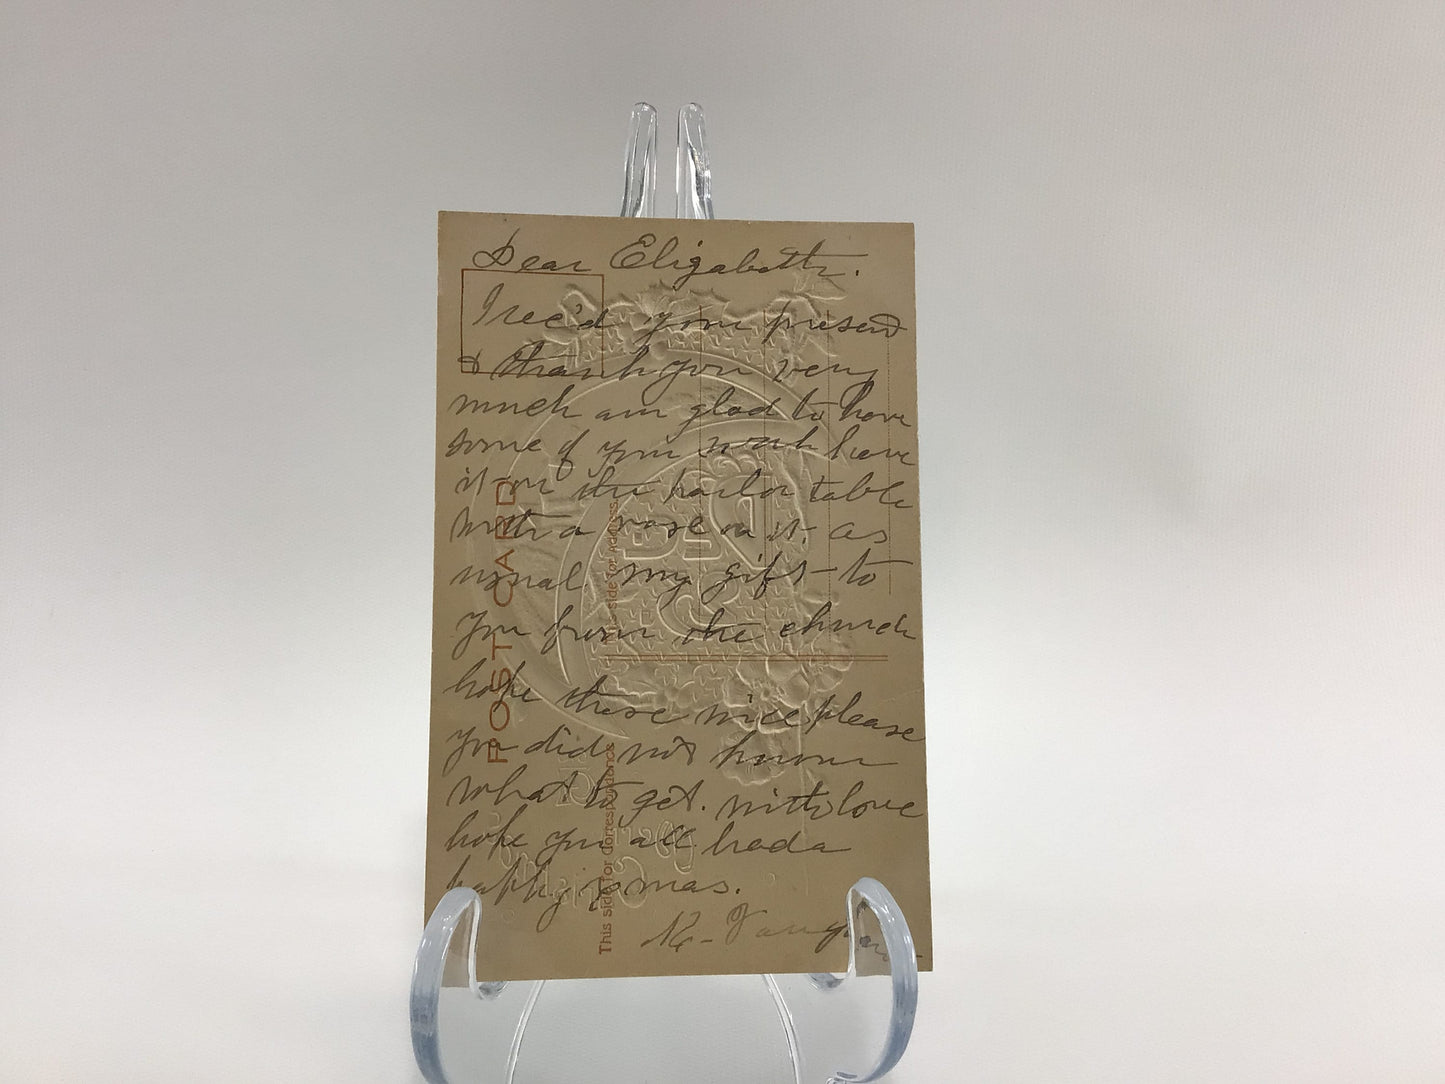 Dear Elizabeth.
I rec'd your present
& thank you very
much am glad to have
some of your work have
it on the parlor table
with a vase on it. as
usual my gift to
you from the church
hope these nice please
you did not know
what to get. with love
hope you all had a
happy xmas.
POST CARD
This side for Address
This side for Correspondence